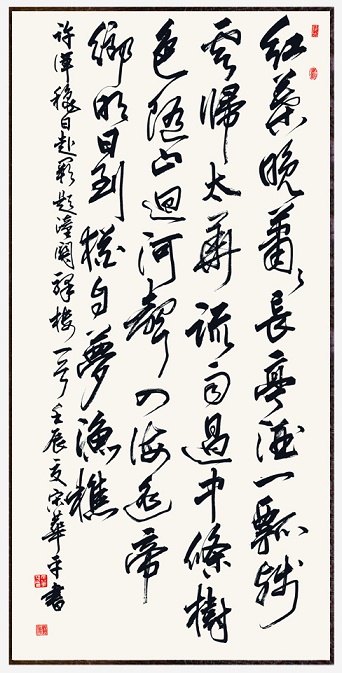 紅葉晚蕭〻長亭酒一瓢殘
雲歸太華疏雨過中條樹
色隨山迴河聲入海遥帝
鄉明日到猶自夢漁樵
許渾秋日赴闕題潼關驛樓一首壬辰夏宋華平書